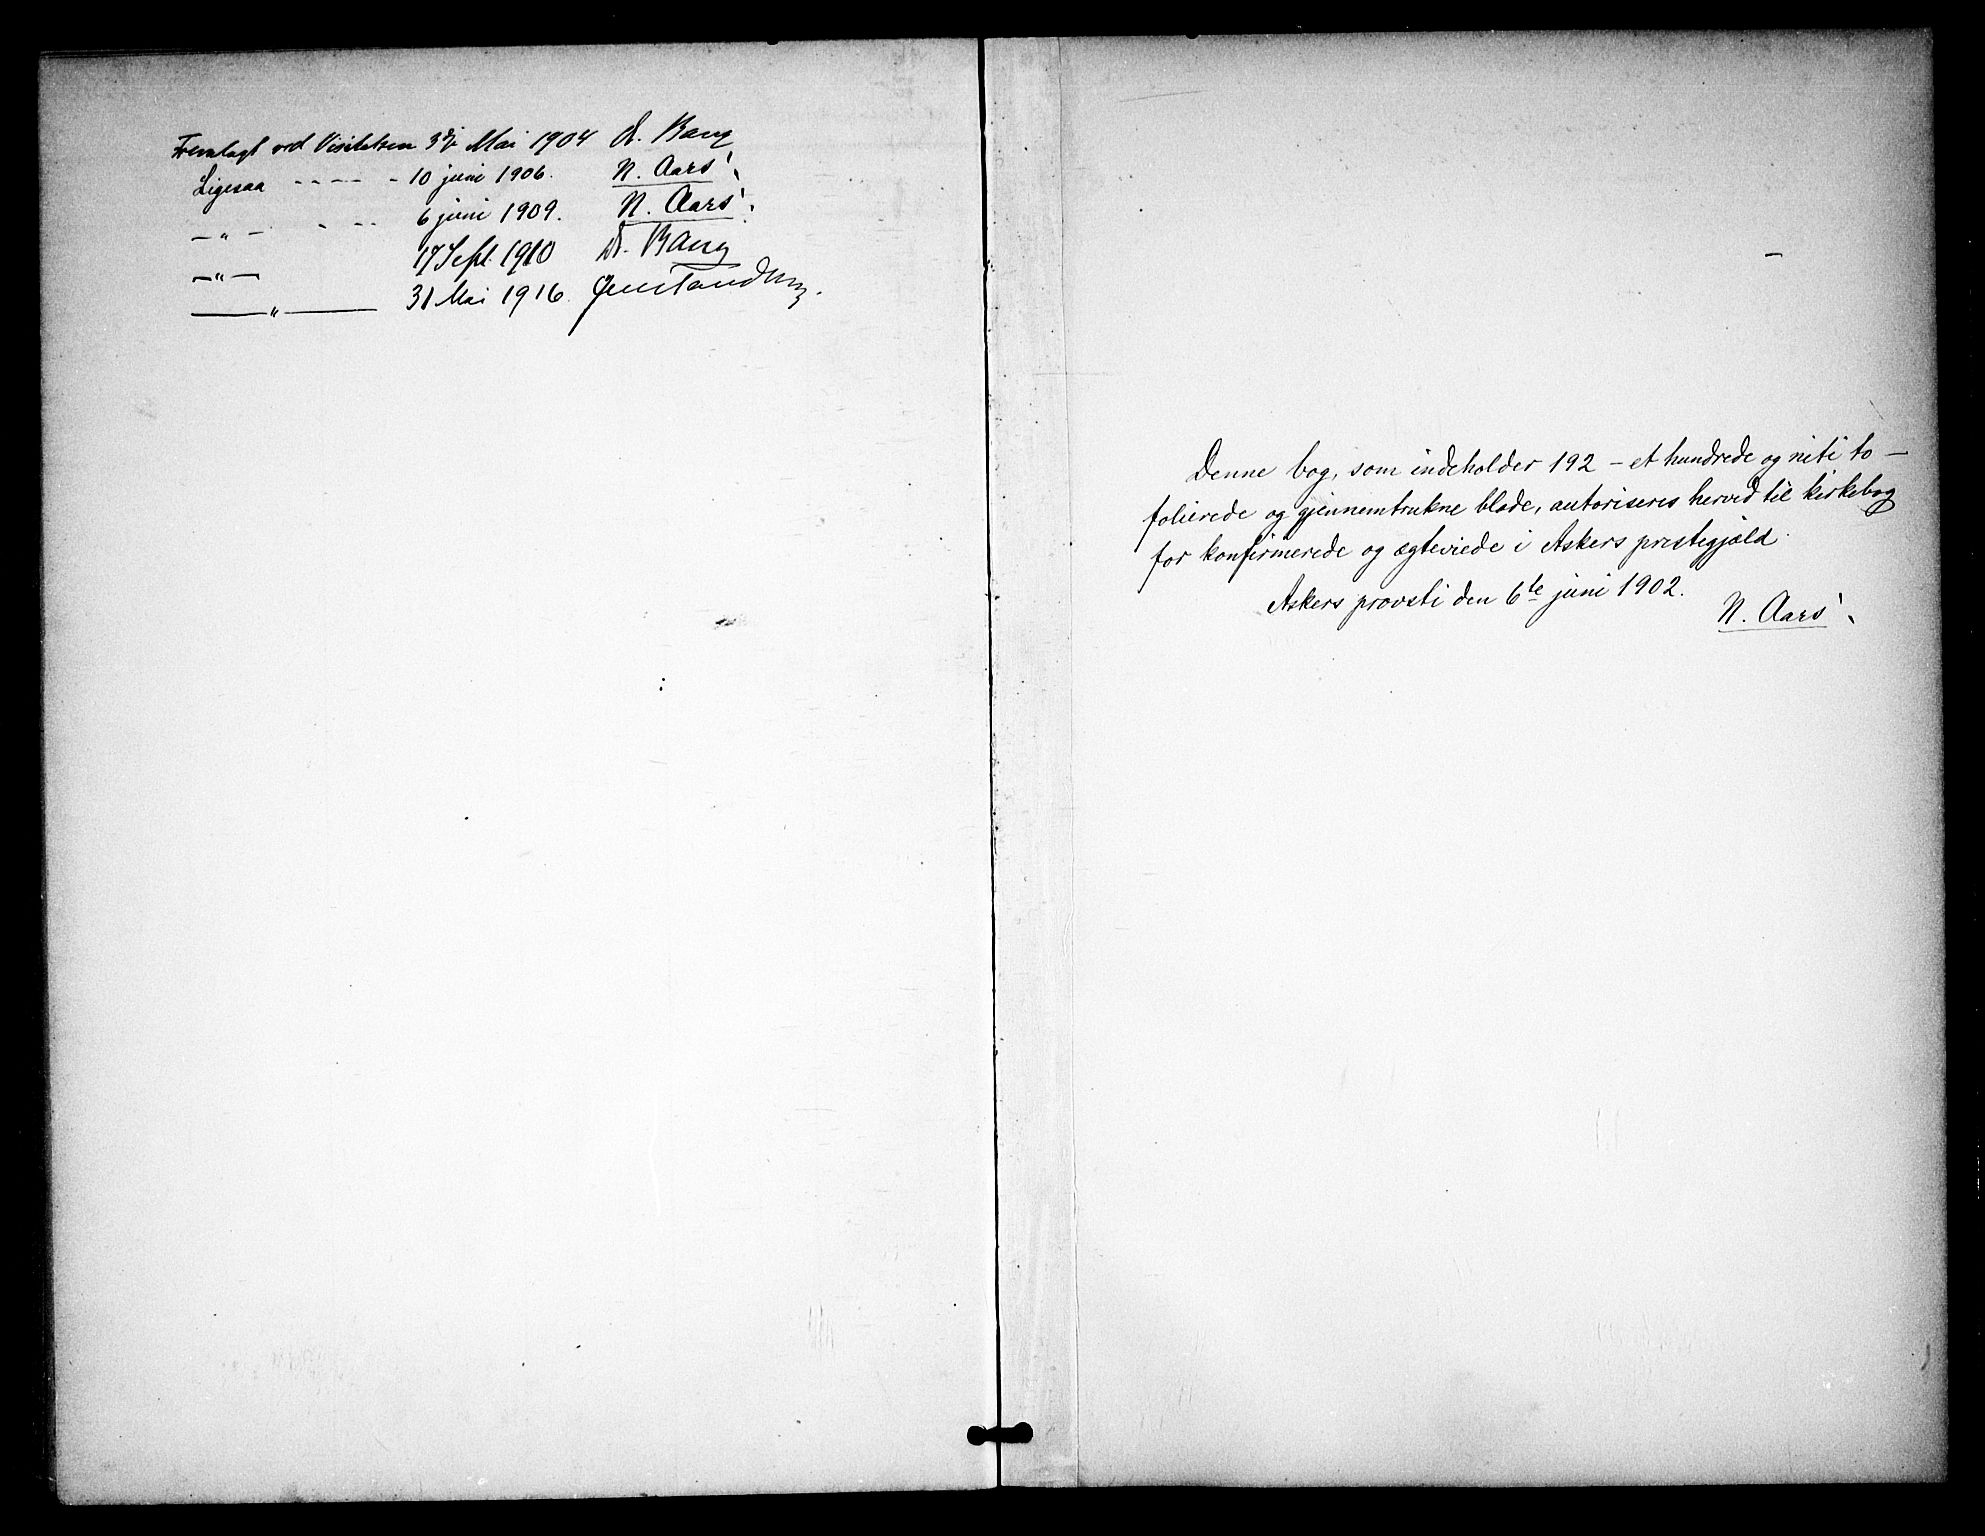 Fremlagt ved Visitatsen 3die Mai 1904 A. Bang
Ligesaa - - - - - 10 juni 1906. N. Aars
— " — - - - 6 juni 1909. N. Aars
— " — 17 Sept. 1910 A. Bang
— " — 31 Mai 1916. Jens Tandberg.
Denne bog, som indeholder 192 – et hundrede og niti to –
folierede og gjennemtrukne blade, autoriseres herved til kirkebog
for konfirmerede og ægteviede i Askers prestegjæld.
Askers provsti den 6te juni 1902.
N. Aars